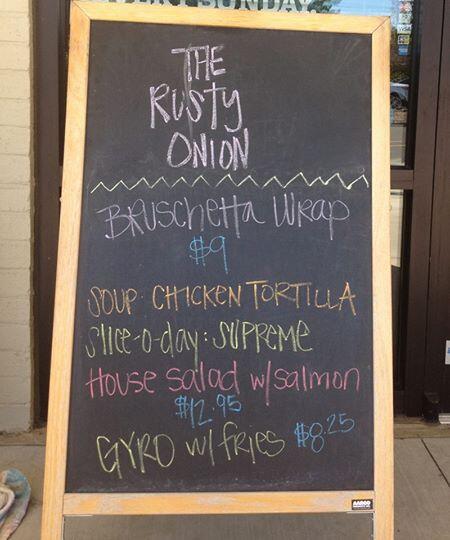 SUNDAY
THE
RUSTY
ONION
BRUSCHETTA WRAP
$9
SOUP: CHICKEN TORTILLA
Slice-o-day: SUPREME
House salad w/salmon
$12.95
GYRO w/ fries $8.25